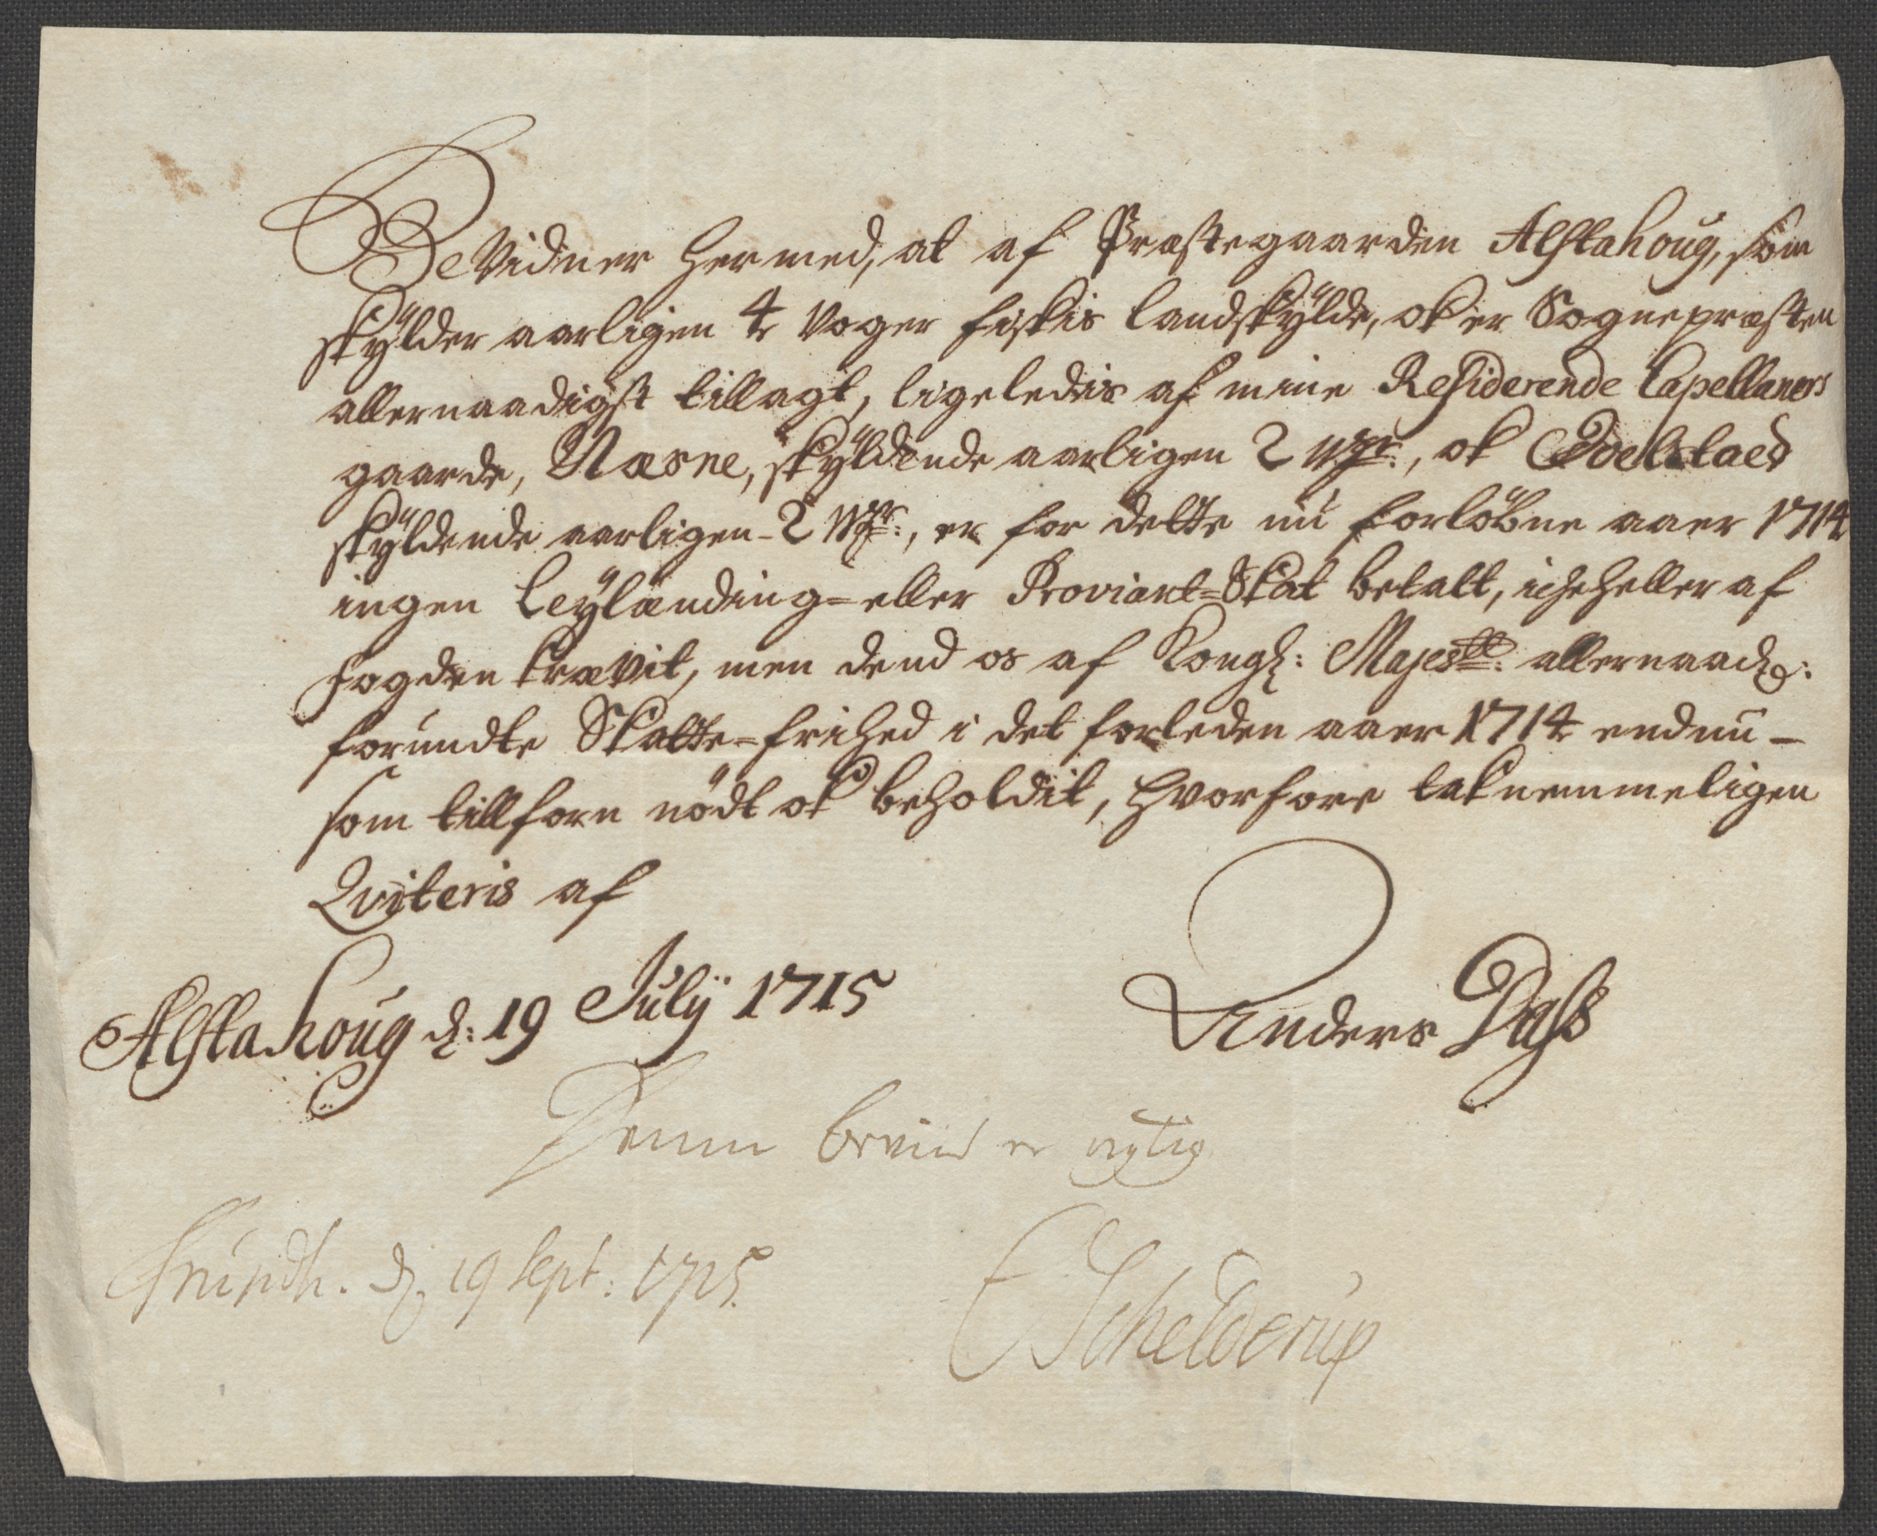 BeVidner hermed, at af Præstegaarden Alstahoug, som
skÿlder aarligen 4 Voger fiskis landskÿlde, ok er Sognepræsten
allernaadigst tillagt, ligeledis af mine Residerende Capellaners
gaarde, Næsne, skÿldende aarligen 2 Wgr:, ok
skÿldende aarligen - 2 Wgr:, er for dette nu forløbne aaer 1714
ingen Leÿlænding= eller Proviant=Skat betalt, icke heller af
fogden krævit, men dend os af Kongl: Majestt: allernaad:
forundte Skatte=frihed i det forleden aaer 1714 endnu -
som tillforn nødt ok beholdit, hvorfore taknemmeligen
Qviteris af
Alstahoug d: 19 Julÿ 1715
Anders Dass
Denne beviis er rigtig
Trundh. d. 19 Sept: 1715.
Schelderup